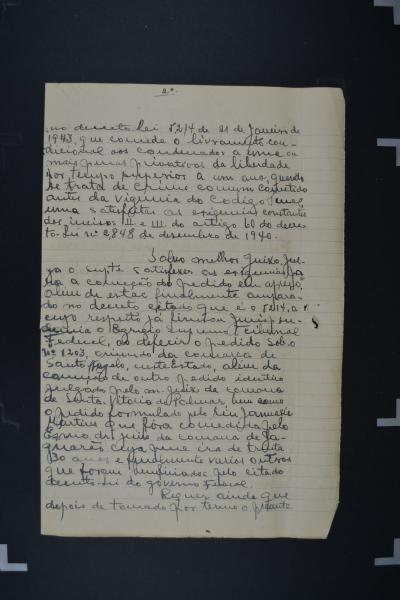 2º
no decreto-lei 5214 de 21 de Janeiro de
1943, que concede o livramento con-
dicional aos condenados a uma ou
mais penas privativas da liberdade
por tempo superior a um ano, quando
se trata de crime comum cometido
antes da vigencia do Codigo Penal,
uma satisfeitas as exigencias constantes
dos incisos II e III do artigo 60 do decre-
to-lei nº 2,848 de desembro de 1940.
Salvo melhor Juizo, jul-
ga o supte satisfazer as exigencias pa-
ra a concessão do pedido em apreço,
alem de estar finalmente ampara-
do no decreto citado que é o 5214, a
cujo respeito já firmou Jurispru-
dencia o Egregio Supremo Tribunal
Federal, ao deferir o pedido sob o
nº 1203, oriundo da comarca de
Santo Angelo, neste Estado, alem da
de outro pedido identico
julgado pelo Juiz da comarca
de Santa Vitoria do Palmar, bem como
o pedido formulado pelo Januario
Martins que fora concedido pelo
Exmo. dr. juiz da comarca de Ja-
guarão cuja pena era de trinta
30 anos e finalmente varios outros
que foram beneficiados pelo citado
decreto-lei do governo Federal.
Requer ainda que
depois de tomado por termo o presente